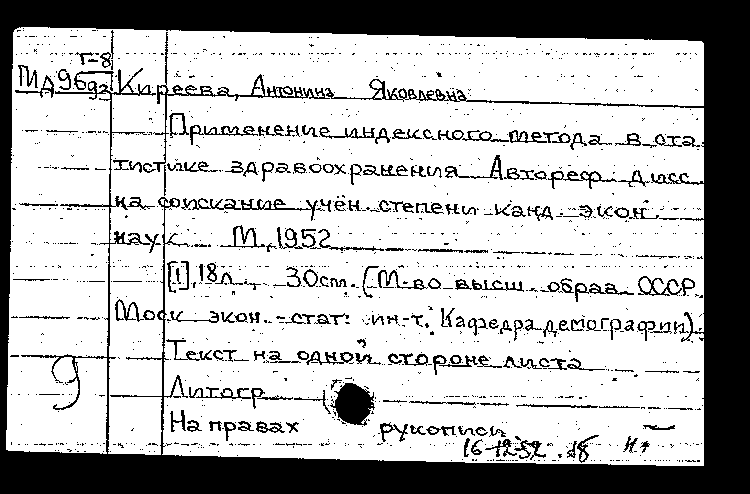 Г-8
Киреева, Антонина Яковлевна
Применение индексного метода в ста
тистике здравоохранения Автореф. дисс.
на соискание учён. степени канд. экон.
наук М., 1952
[1], 18 л., 30 см. (М-во высш. образ. СССР.
Моск экон.-стат. ин-т. Кафедра демографии).
Текст на одной стороне листа
Литогр
9
На правах рукописи
16-12-52